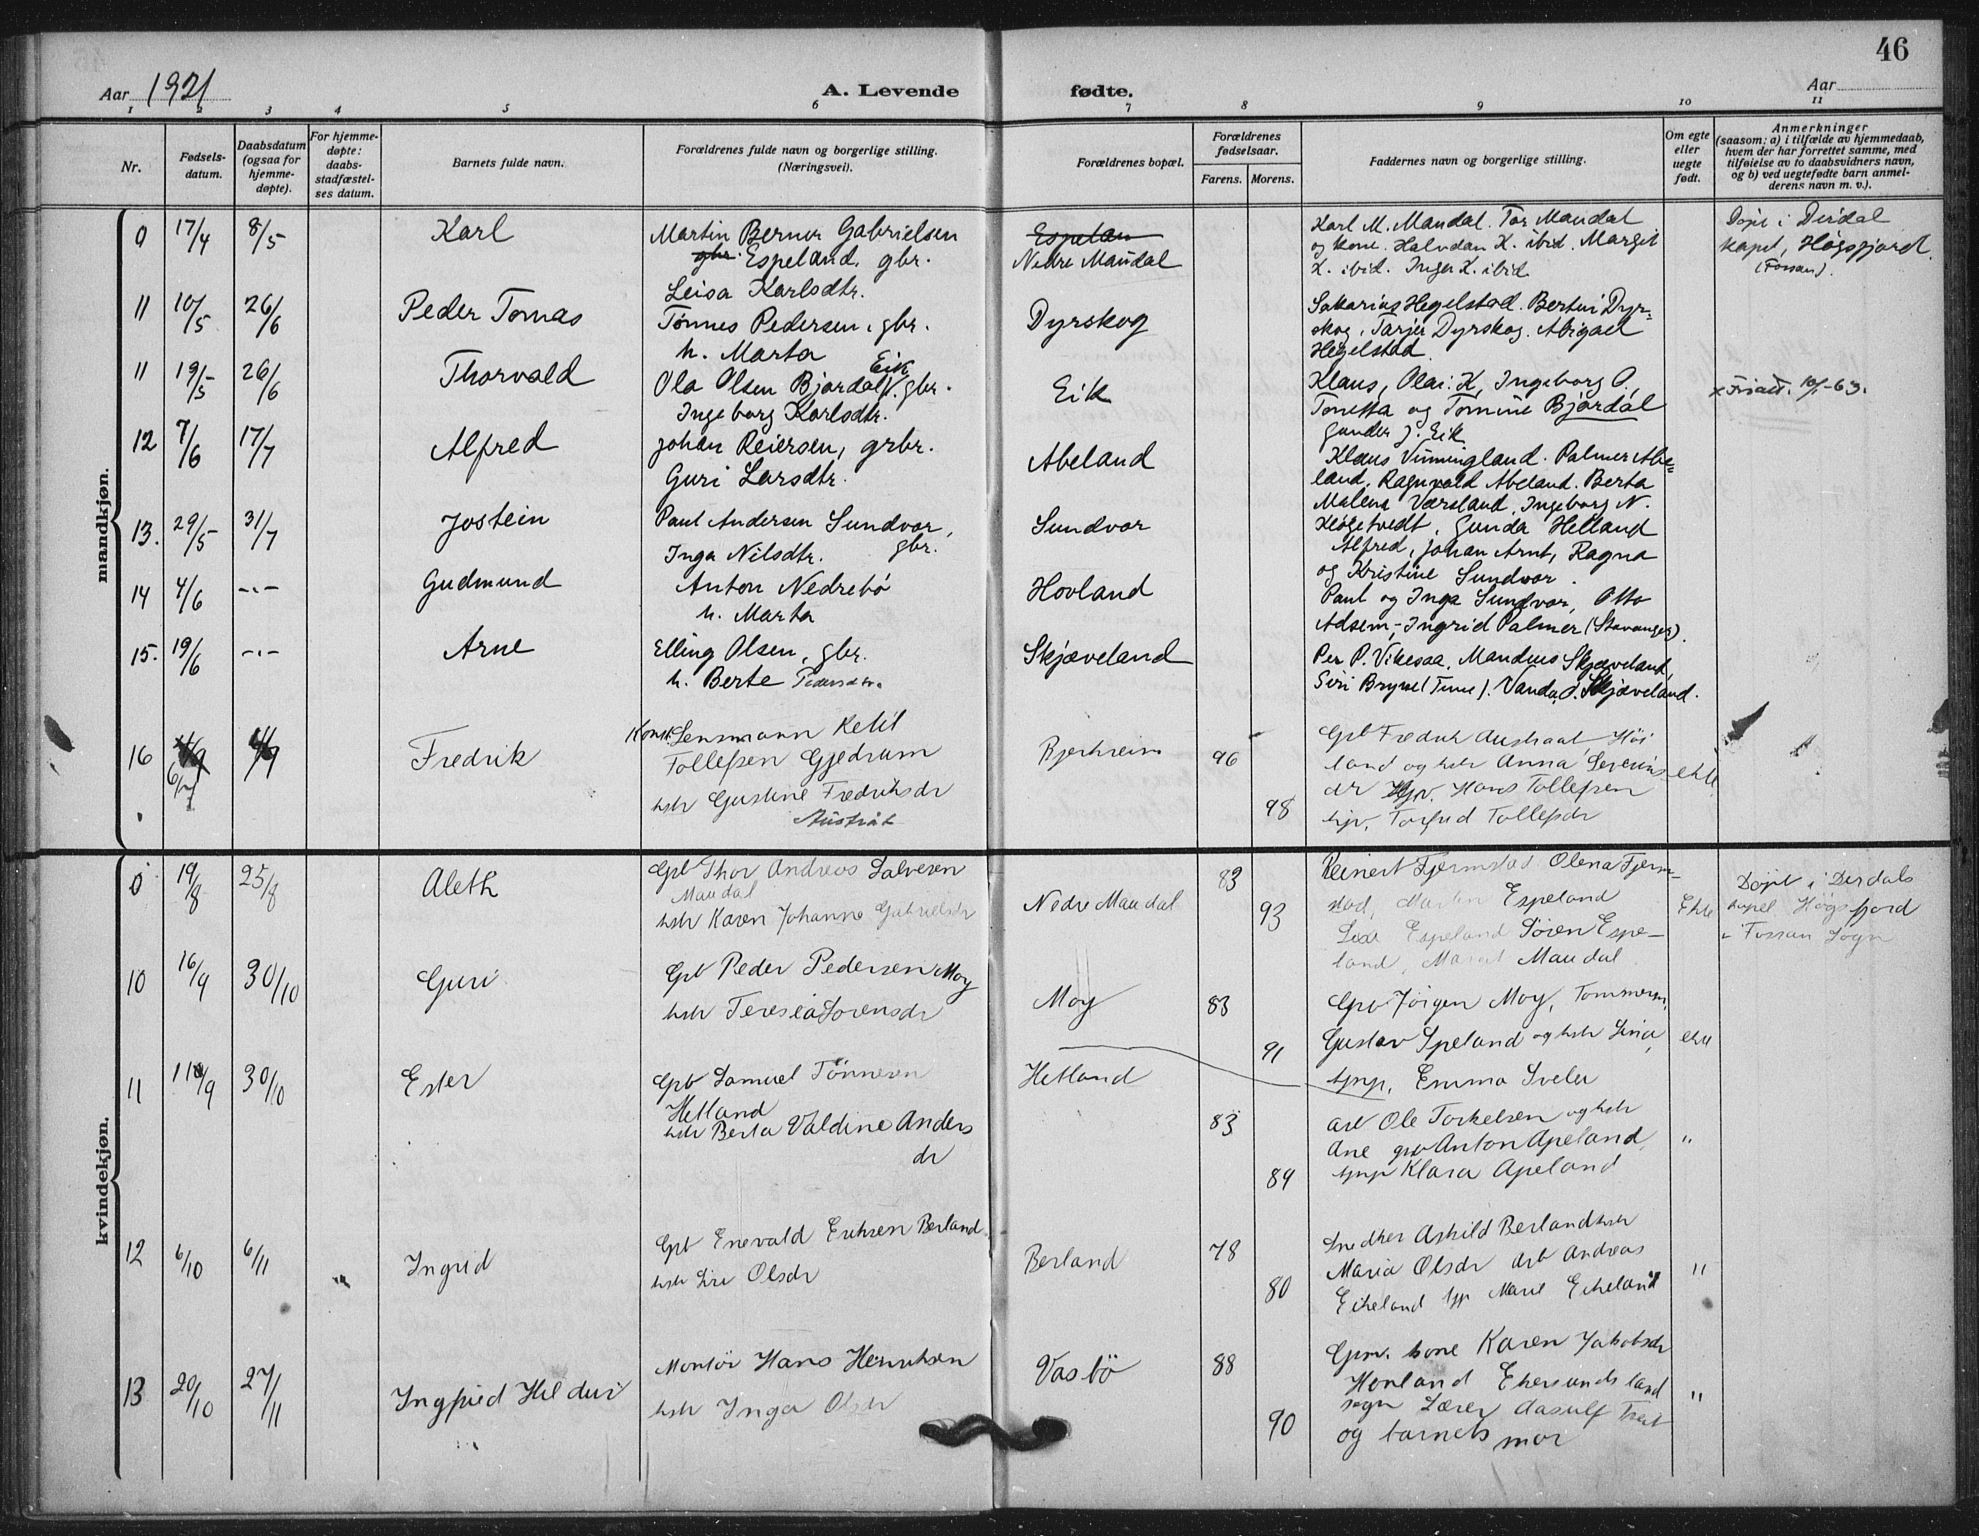 46
Aar 1921
A. Levende fødte.
Aar
1 2 3 4 5 6 7 8 9 10 11
Nr.
Fødsels-
datum.
Daabsdatum
(ogsaa for
hjemme-
døpte).
For hjemme-
døpte:
daabs-
stadfæstel-
ses datum.
Barnets fulde navn.
Forældrenes fulde navn og borgerlige stilling.
(Næringsvei).
Forældrenes bopæl.
Forældrenes
fødselsaar.
Farens. Morens.
Faddernes navn og borgerlige stilling.
Om egte
eller
uegte
født.
Anmerkninger
(saasom: a) i tilfælde av hjemmedaab,
hvem der har forrettet samme, med
tilføielse av to daabsvidners navn,
og b) ved uegtefødte barn anmel-
derens navn m. v.).
mandkjøn.
0 17/4 8/5 Karl
Martin Berner Gabrielsen
gbr. Espeland, gbr.
Leisa Karlsdtr.
Espelan
Nedre Maudal
Karl M. Maudal. Tor Maudal
og kone. Halvdan K. ibid. Margit
K. ibid. Inger K. ibid.
Døpt i Dirdal
kapel, Høgsfjord
(Fossan).
11 10/5 26/6 Peder Tomas
Tønnes Pedersen, gbr.
h. Marta
Dyrskog
Sakarias Hegelstad. Bertin Dyr-
skog, Tarjer Dyrskog. Abigael
Hegelstad.
11 19/5 26/6 Thorvald
Ola Olsen Bjordal, Eik gbr.
Ingeborg Karlsdtr.
Eik
Klaus, Olai K, Ingeborg O.
Tonetta og Tomine Bjordal
Gunder J. Eik
12 7/6 17/7 Alfred
Johan Reiersen, grbr.
Guri Larsdtr.
Abeland
Klaus Vinningland. Palmer Abe-
land, Ragnvald Abeland. Berta
Malena Værsland, Ingeborg N.
13. 29/5 31/7 Jostein
Paul Andersen Sundvor,
gbr.
Inga Nilsdtr.
Sundvor
Gunda Helland
Alfred, Johan Arnt, Ragna
og Kristine Sundvor.
14 4/6 -"- Gudmund
Anton Nedrebø
h. Marta
Hovland
Paul og Inga Sundvor, Otto
Adsem, Ingrid Palmer (Stavanger).
15. 19/6 -"- Arne
Elling Olsen, gbr.
h. Berte Pedersdtr.
Skjæveland
Per P. Vikesaa. Maudius Skjæveland,
Siri Bryne (Time). Vanda O. Skjæveland.
16 6/7 Fredrik
Konst. Lensmann Ketil
Tollefsen Gjedrem
hstr Gustine Fredriksdr
Austråt
Bjerkreim
96
98
Gpb Fredrik Austraat, Høi
land og hstr Anna Severins
dr Ugv. Hans Tollefsen
Torfrid Tollefsdr
ekte
kvindekjøn.
0 19/8 25/8 Aleth
Gpb Thor Andreas Salvesen
Maudal
hstr Karen Johanne Gabrielsdr
Nedre Maudal
83
93
Reinert Fjermstad Olena Fjerm-
stad, Martin Espeland
Lisa Espeland Søren Espe-
land, Marat Maudal
Ekte
Døpt i Dirdals
kapel Høgsfjord
Fossan Sogn
10 16/9 30/10 Guri
Gpb Peder Pedersen Moy
hstr Teresia Sorensdr
Moy
83
91
Gpb Jörgen Moy, Tommerm.
Gustav Speland og hstr Lina,
Emma Sveler
ekte
11 11/9 30/10 Ester
Gpb Samuel Tönnesen
Hetland
hstr Berta Valdine Anders
dr
Hetland
83
89
arb Ole Torkelsen og hstr
Ane gpb Anton Apeland,
Klara Apeland
"
12 6/10 6/11 Ingrid
Gpb Enevald Eriksen Berland
hstr Siri Olsdr
Berland
78
80
Snedker Askild Berland hstr
Maria Olsdr Arb Andreas
Eikeland Marie Eikeland
"
13 20/10 27/11 Ingfrid Hildur
Montör Hans Henriksen
hstr Inga Olsdr
Vasbö
88
90
Gpm. kone Karen Jakobsdr
Hovland Ekersunds land
sogn Lærer
og barnets mor
"